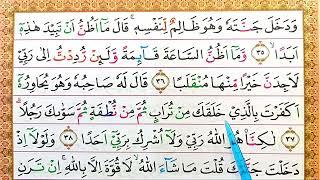 وَدَخَلَ جَنَّتَهٗ وَهُوَ ظَالِمٌ لِّنَفْسِهٖ ۚ قَالَ مَاۤ اَظُنُّ اَنْ تَبِيْدَ هٰذِهٖۤ
اَبَدًا ۙ ﴿۳۵﴾ وَّمَاۤ اَظُنُّ السَّاعَةَ قَآئِمَةً ۙ وَّلَئِنْ رُّدِدْتُّ اِلٰى رَبِّيْ
لَاَجِدَنَّ خَيْرًا مِّنْهَا مُنْقَلَبًا ۚ ﴿۳۶﴾ قَالَ لَهٗ صَاحِبُهٗ وَهُوَ يُحَاوِرُهٗۤ
اَكَفَرْتَ بِالَّذِيْ خَلَقَكَ مِنْ تُرَابٍ ثُمَّ مِنْ نُّطْفَةٍ ثُمَّ سَوّٰىكَ رَجُلًا ؕ ﴿۳۷﴾
لٰكِنَّا۠ هُوَ اللّٰهُ رَبِّيْ وَلَاۤ اُشْرِكُ بِرَبِّيْۤ اَحَدًا ﴿۳۸﴾ وَلَوْلَاۤ اِذْ
دَخَلْتَ جَنَّتَكَ قُلْتَ مَا شَآءَ اللّٰهُ ۙ لَا قُوَّةَ اِلَّا بِاللّٰهِ ۚ اِنْ تَرَنِ